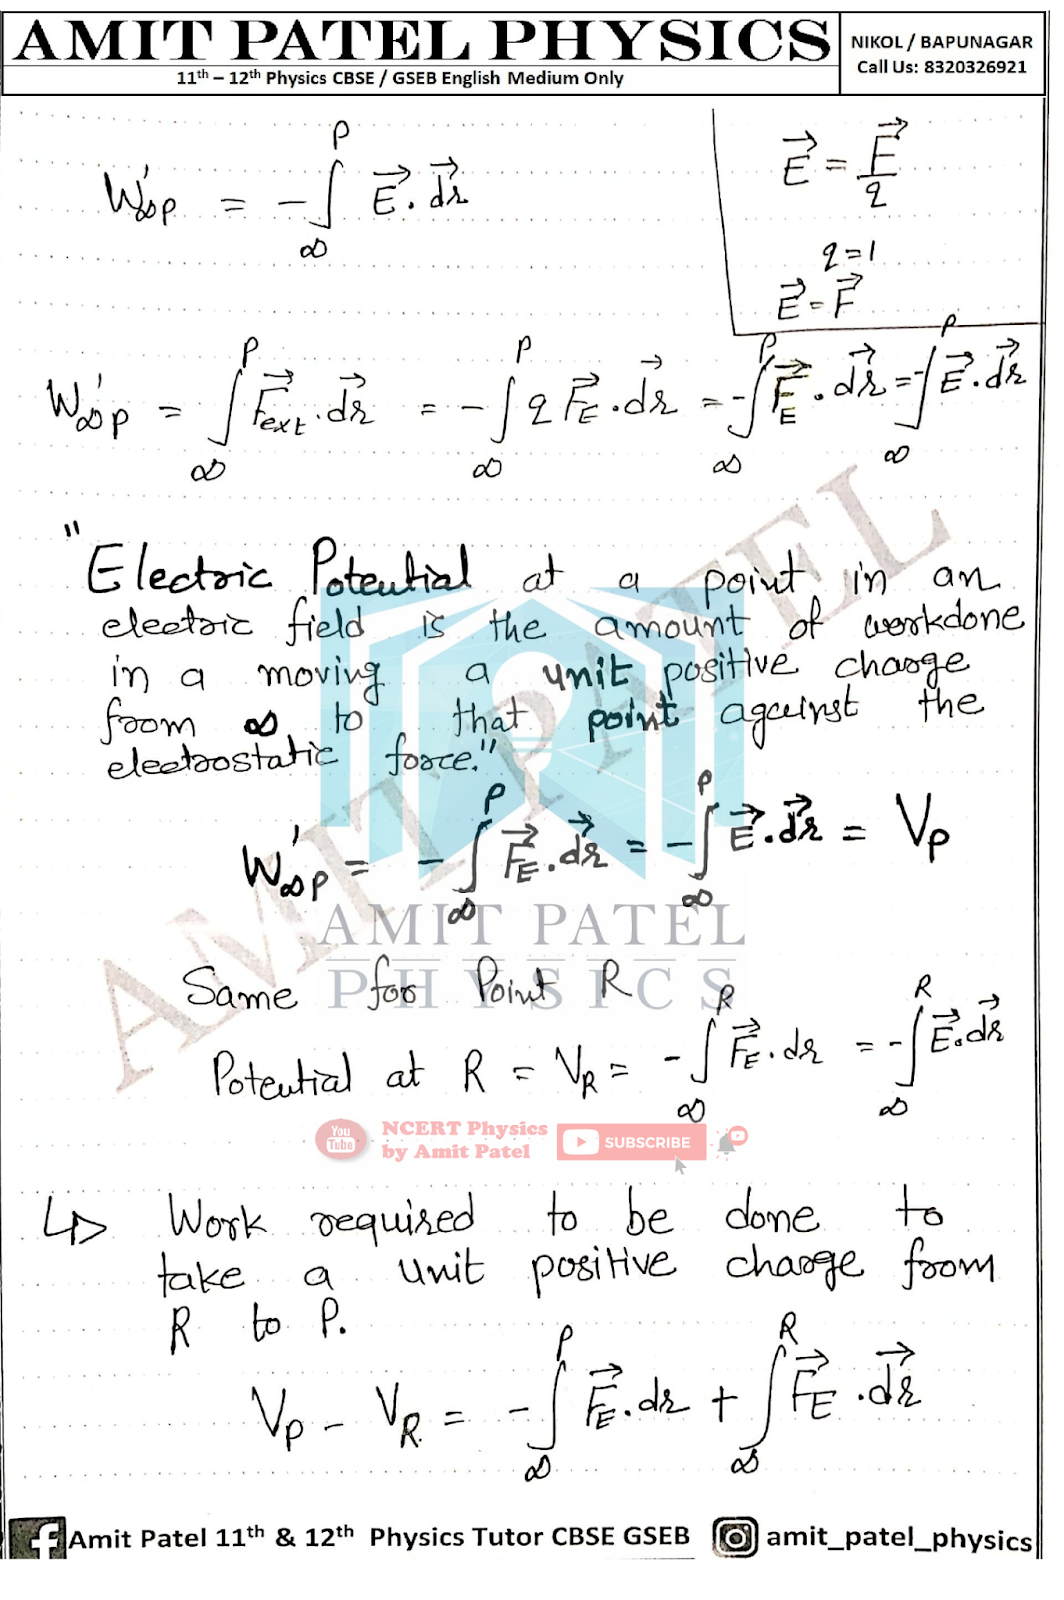 AMIT PATEL PHYSICS
11th – 12th Physics CBSE / GSEB English Medium Only
NIKOL / BAPUNAGAR
Call Us: 8320326921
W'∞P = -∫∞^P E⃗ . dr⃗
E⃗ = F⃗/q
q = 1
E⃗ = F⃗
W'∞P = ∫∞^P F⃗ext . dr⃗ = -∫∞^P q F⃗E . dr⃗ = -∫∞^P F⃗E . dr⃗ = -∫∞^P E⃗ . dr⃗
"Electric Potential at a point in an
electric field is the amount of workdone
in a moving a unit positive charge
from ∞ to that point against the
electrostatic force."
W'∞P = -∫∞^P F⃗E . dr⃗ = -∫∞^P E⃗ . dr⃗ = VP
AMIT PATEL
PHYSICS
AMIT PATEL
Same for Point R
Potential at R = VR = -∫∞^R F⃗E . dr = -∫∞^R E⃗ . dr⃗
You
Tube
NCERT Physics
by Amit Patel
SUBSCRIBE
↳ Work required to be done to
take a unit positive charge from
R to P.
VP - VR = -∫∞^P F⃗E . dr + ∫∞^R F⃗E . dr⃗
f Amit Patel 11th & 12th Physics Tutor CBSE GSEB amit_patel_physics